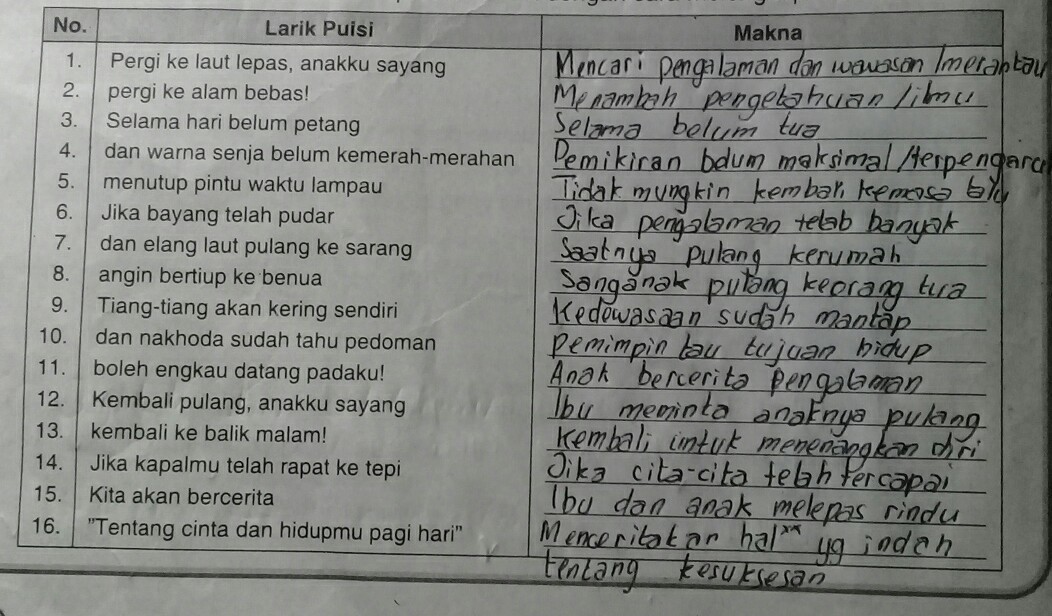 No. Larik Puisi Makna
1. Pergi ke laut lepas, anakku sayang Mencari pengalaman dan wawasan /merantau
2. pergi ke alam bebas! Menambah pengetahuan /ilmu
3. Selama hari belum petang Selama belum tua
4. dan warna senja belum kemerah-merahan Pemikiran belum maksimal /terpengaru
5. menutup pintu waktu lampau Tidak mungkin kembali kemasa lalu
6. Jika bayang telah pudar Jika pengalaman telah banyak
7. dan elang laut pulang ke sarang Saatnya pulang kerumah
8. angin bertiup ke benua Sang anak pulang keorang tua
9. Tiang-tiang akan kering sendiri Kedewasaan sudah mantap
10. dan nakhoda sudah tahu pedoman Pemimpin tau tujuan hidup
11. boleh engkau datang padaku! Anak bercerita pengalaman
12. Kembali pulang, anakku sayang Ibu meminta anaknya pulang
13. kembali ke balik malam! Kembali untuk menenangkan diri
14. Jika kapalmu telah rapat ke tepi Jika cita-cita telah tercapai
15. Kita akan bercerita Ibu dan anak melepas rindu
16. "Tentang cinta dan hidupmu pagi hari" Menceritakan hal yg indah
tentang kesuksesan